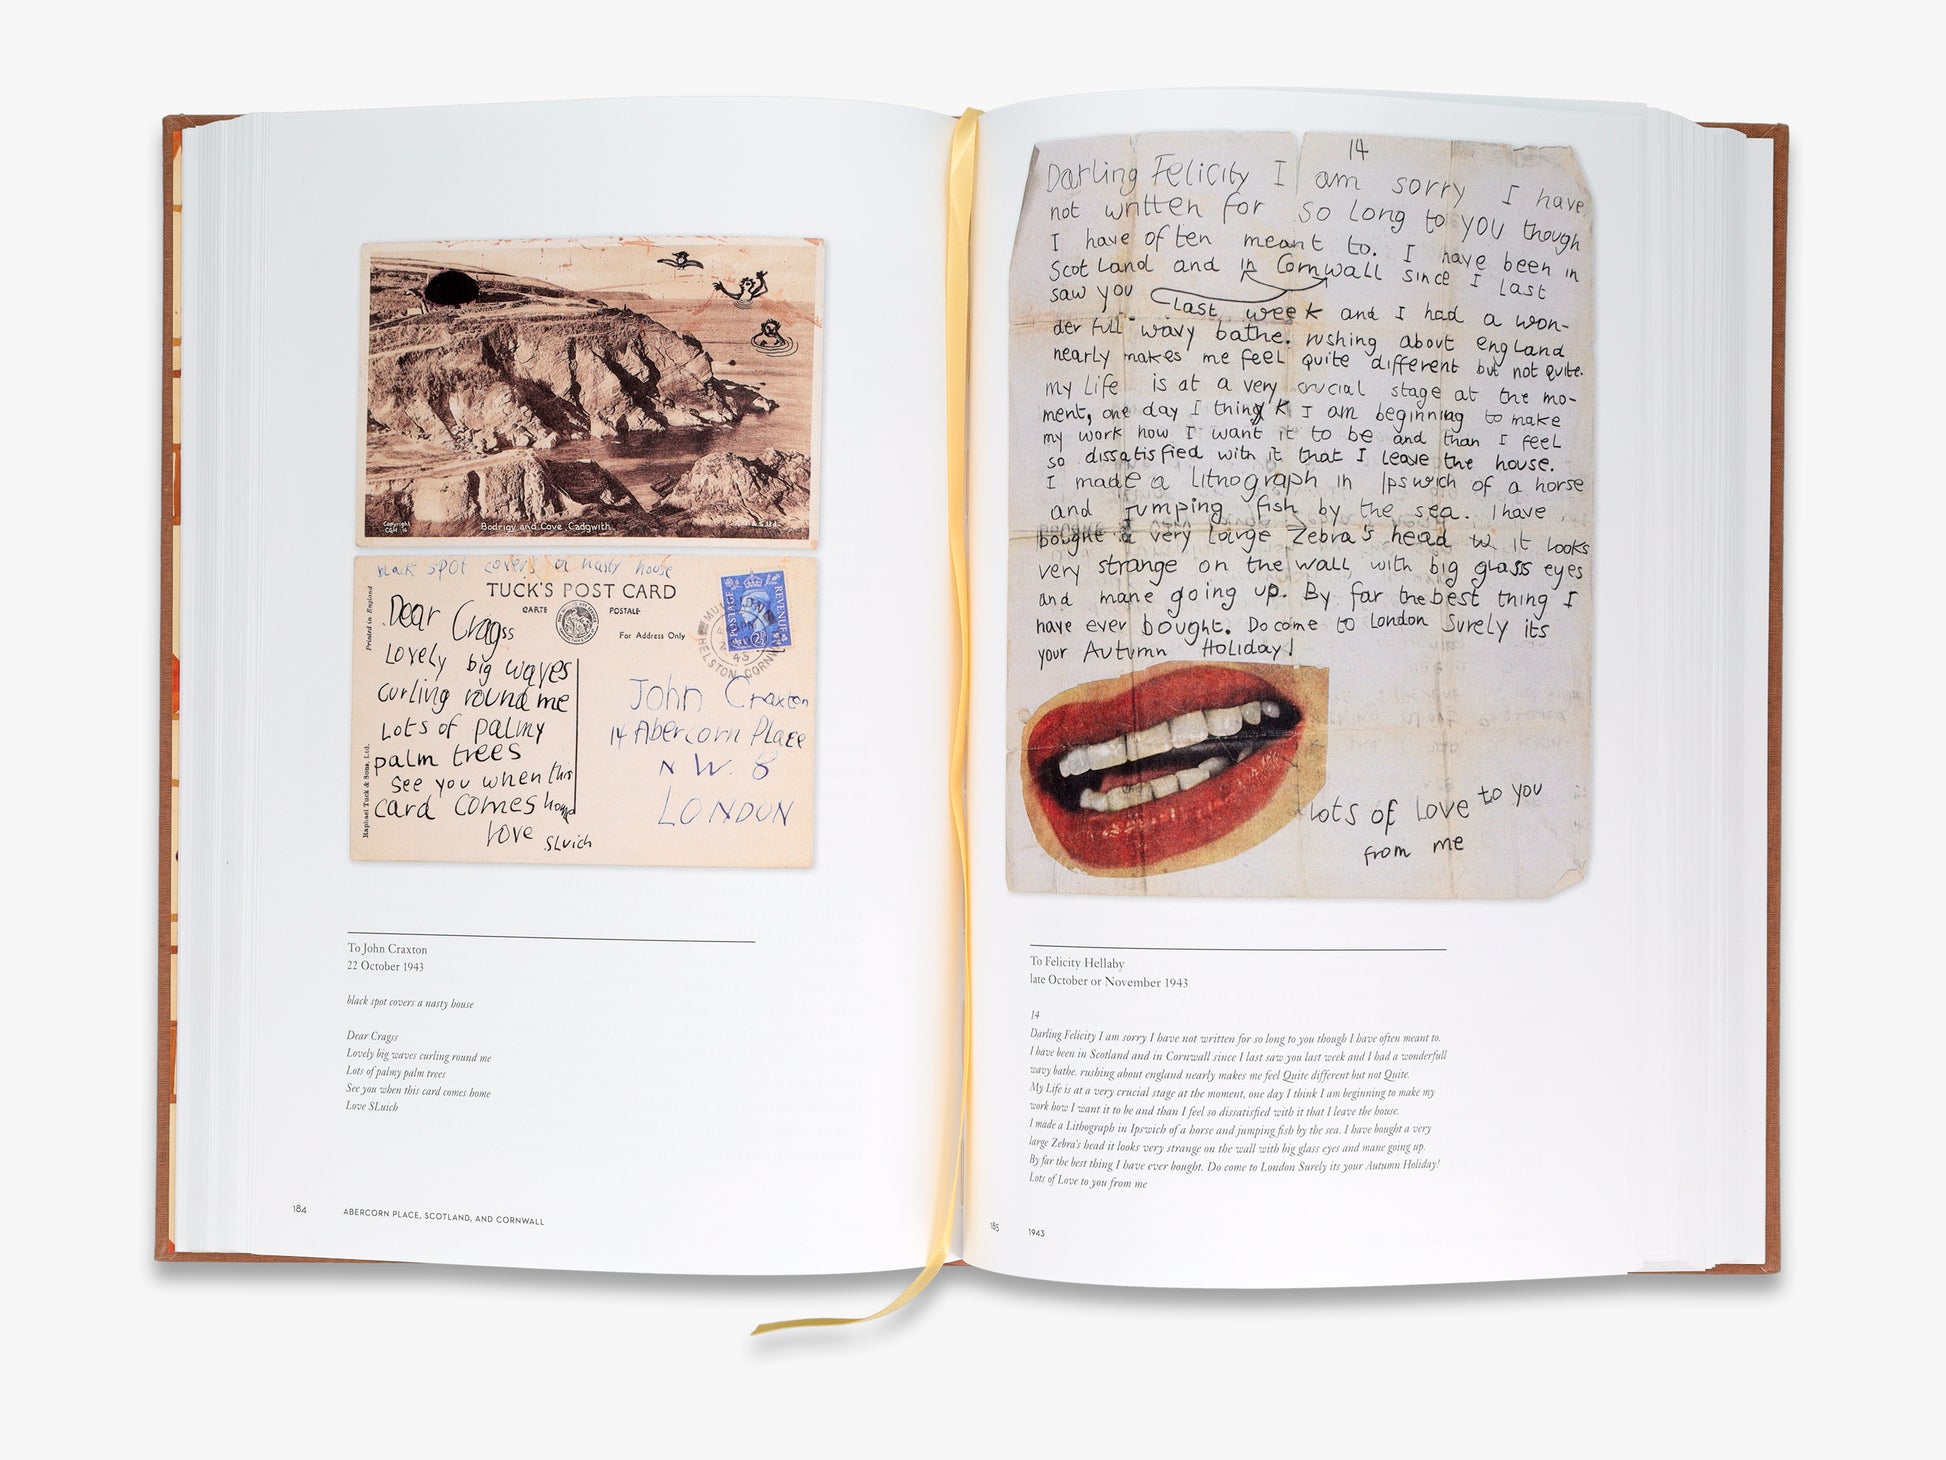 Copyright
Bodrigy and Cove, Cadgwith.
black spot covers a nasty house
TUCK'S POST CARD
CARTE POSTALE
For Address Only
Printed in England
Raphael Tuck & Sons, Ltd.
POSTAGE REVENUE
HELSTON CORNWALL
Dear Cragss
Lovely big waves
curling round me
Lots of palmy
palm trees
See you when this
card comes home
love SLuich
John Craxton
14 Abercorn Place
N W. 8
LONDON
To John Craxton
22 October 1943
black spot covers a nasty house
Dear Cragss
Lovely big waves curling round me
Lots of palmy palm trees
See you when this card comes home
Love SLuich
184 ABERCORN PLACE, SCOTLAND, AND CORNWALL
14
Darling Felicity I am sorry I have
not written for so long to you though
I have often meant to. I have been in
Scotland and in Cornwall since I last
saw you last week and I had a won-
derfull wavy bathe. rushing about england
nearly makes me feel quite different but not quite.
my Life is at a very crucial stage at the mo-
ment, one day I think I am beginning to make
my work how I want it to be and than I feel
so dissatisfied with it that I leave the house.
I made a lithograph in Ipswich of a horse
and jumping fish by the sea. I have
bought a very large Zebra's head it looks
very strange on the wall with big glass eyes
and mane going up. By far the best thing I
have ever bought. Do come to London Surely its
your Autumn Holiday!
Lots of Love to you
from me
To Felicity Hellaby
late October or November 1943
14
Darling Felicity I am sorry I have not written for so long to you though I have often meant to.
I have been in Scotland and in Cornwall since I last saw you last week and I had a wonderfull
wavy bathe. rushing about england nearly makes me feel Quite different but not Quite.
My Life is at a very crucial stage at the moment, one day I think I am beginning to make my
work how I want it to be and than I feel so dissatisfied with it that I leave the house.
I made a Lithograph in Ipswich of a horse and jumping fish by the sea. I have bought a very
large Zebra's head it looks very strange on the wall with big glass eyes and mane going up.
By far the best thing I have ever bought. Do come to London Surely its your Autumn Holiday!
Lots of Love to you from me
185 1943